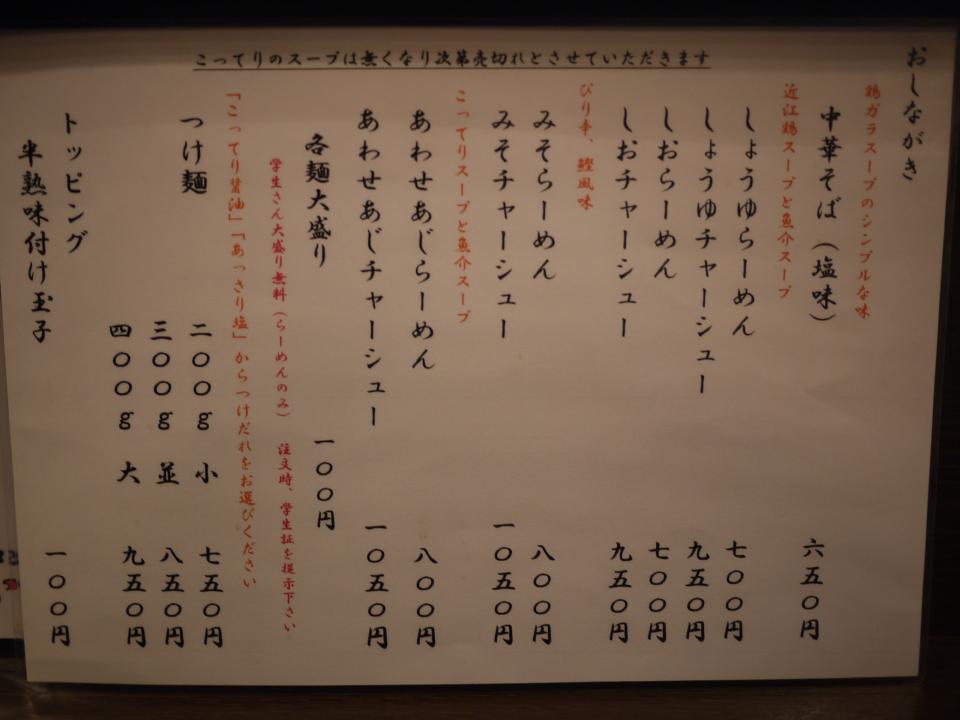 こってりのスープは無くなり次第売切れとさせていただきます
おしながき
鶏ガラスープのシンプルな味
中華そば（塩味） 六五〇円
近江鶏スープと魚介スープ
しょうゆらーめん 七〇〇円
しょうゆチャーシュー 九五〇円
しおらーめん 七〇〇円
しおチャーシュー 九五〇円
ぴり辛、鰹風味
みそらーめん 八〇〇円
みそチャーシュー 一〇五〇円
こってりスープと魚介スープ
あわせあじらーめん 八〇〇円
あわせあじチャーシュー 一〇五〇円
各麺大盛り 一〇〇円
学生さん大盛り無料（らーめんのみ） 注文時、学生証を提示下さい
「こってり醤油」「あっさり塩」からつけだれをお選びください
つけ麺 二〇〇g 小 七五〇円
三〇〇g 並 八五〇円
四〇〇g 大 九五〇円
トッピング
半熟味付け玉子 一〇〇円